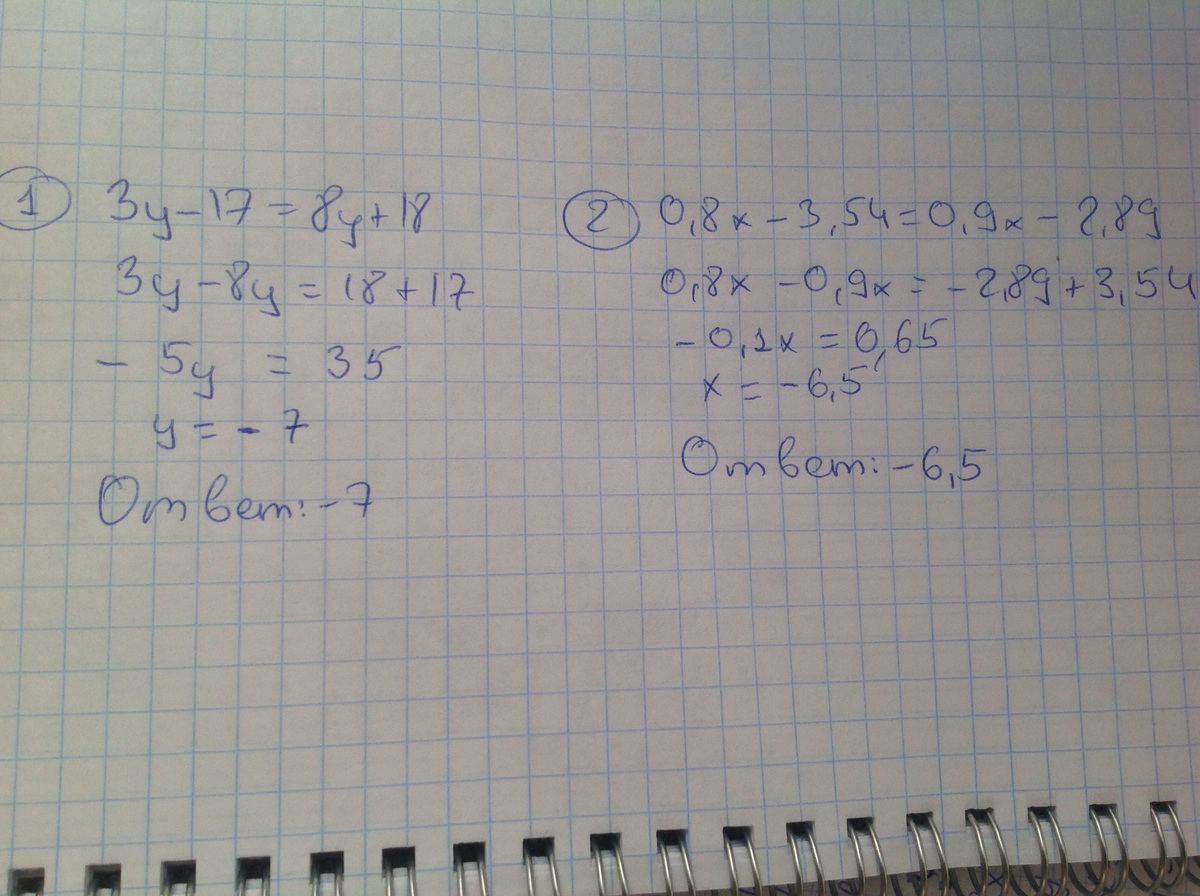 1 3y-17=8y+18
3y-8y=18+17
- 5y = 35
y=-7
Ответ:-7
2 0,8x-3,54=0,9x-2,89
0,8x-0,9x=-2,89+3,54
-0,1x=0,65
x=-6,5
Ответ:-6,5